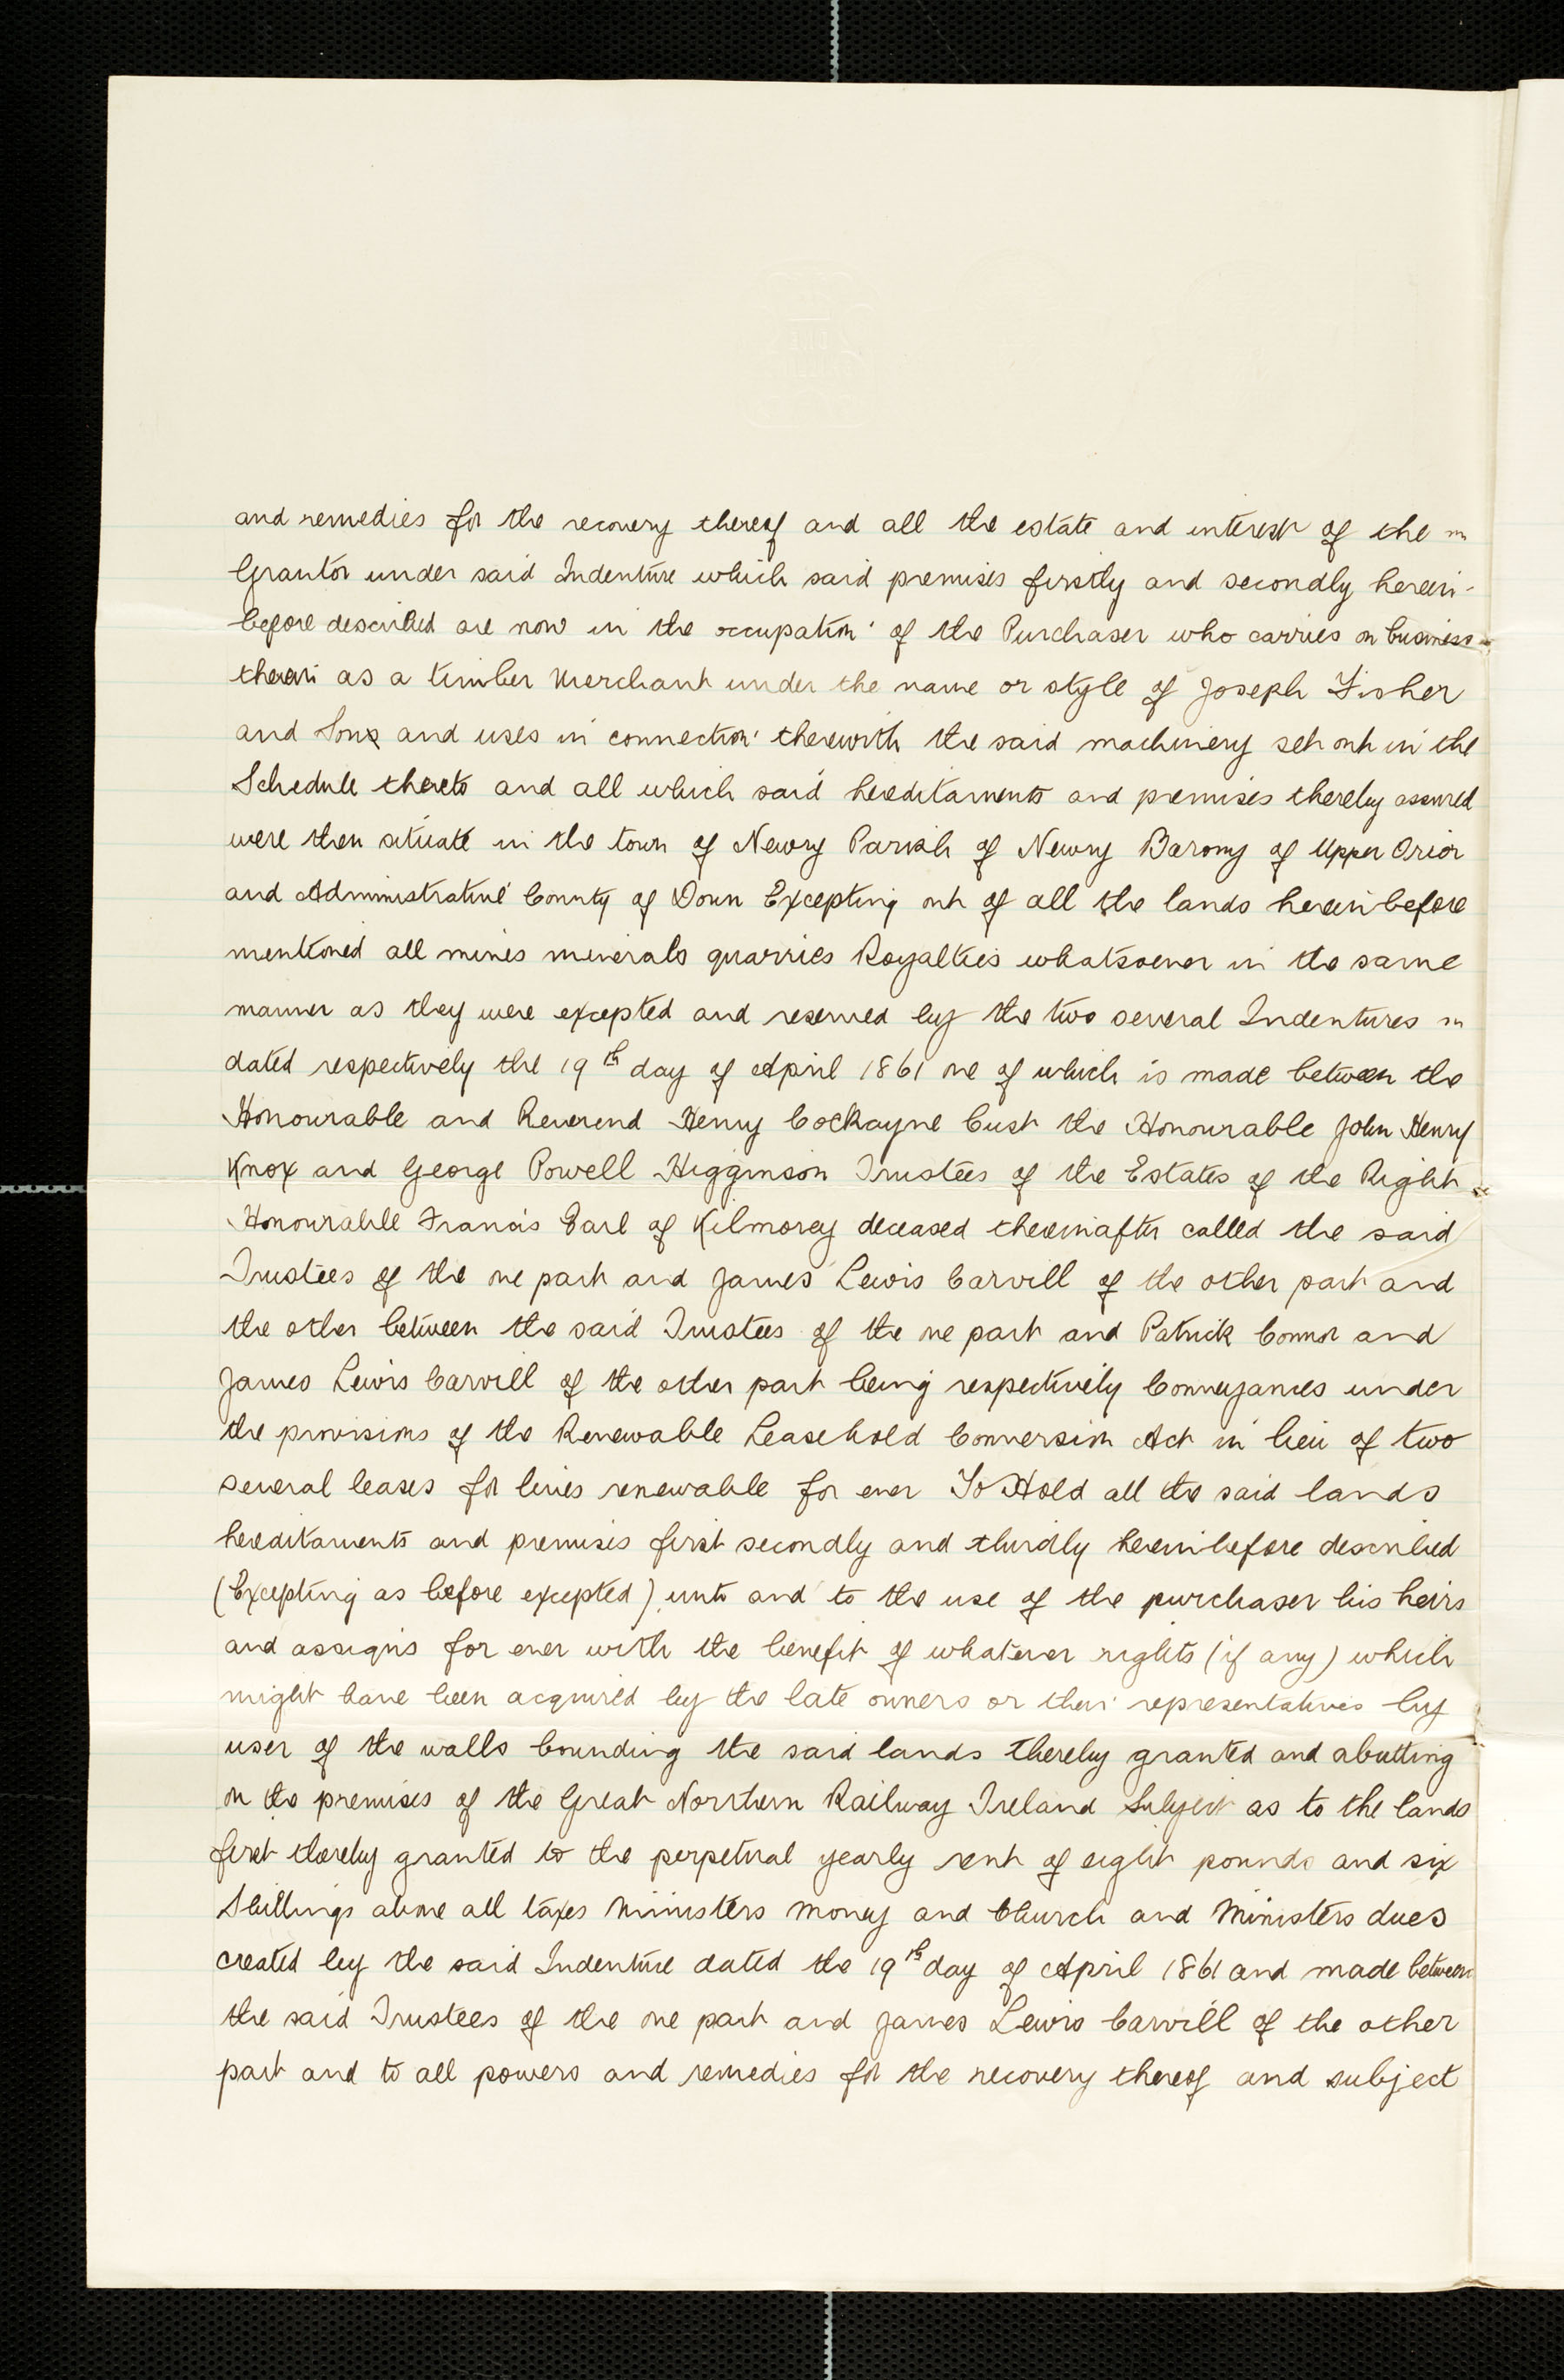 and remedies for the recovery thereof and all the estate and interest of the
Grantor under said Indenture which said premises firstly and secondly herein-
before described are now in the occupation of the Purchaser who carries on business
therein as a timber Merchant under the name or style of Joseph Fisher
and Sons and uses in connection therewith the said machinery set out in the
Schedule thereto and all which said hereditaments and premises thereby assured
were then situate in the town of Newry Parish of Newry Barony of Upper Orior
and Administrative County of Down Excepting out of all the lands hereinbefore
mentioned all mines minerals quarries Royalties whatsoever in the same
manner as they were excepted and reserved by the two several Indentures
dated respectively the 19th day of April 1861 one of which is made between the
Honourable and Reverend Henry Cockayne Cust the Honourable John Henry
Knox and George Powell Higginson Trustees of the Estates of the Right
Honourable Francis Earl of Kilmorey deceased thereinafter called the said
Trustees of the one part and James Lewis Carvill of the other part and
the other between the said Trustees of the one part and Patrick Connor and
James Lewis Carvill of the other part being respectively Conveyances under
the provisions of the Renewable Leasehold Conversion Act in lieu of two
several leases for lives renewable for ever To Hold all the said lands
hereditaments and premises first secondly and thirdly hereinbefore described
(Excepting as before excepted) unto and to the use of the purchaser his heirs
and assigns for ever with the benefit of whatever rights (if any) which
might have been acquired by the late owners or their representatives by
user of the walls bounding the said lands thereby granted and abutting
on the premises of the Great Northern Railway Ireland Subject as to the lands
first thereby granted to the perpetual yearly rent of eight pounds and six
Shillings above all taxes Ministers Money and Church and Ministers dues
created by the said Indenture dated the 19th day of April 1861 and made between
the said Trustees of the one part and James Lewis Carvill of the other
part and to all powers and remedies for the recovery thereof and subject